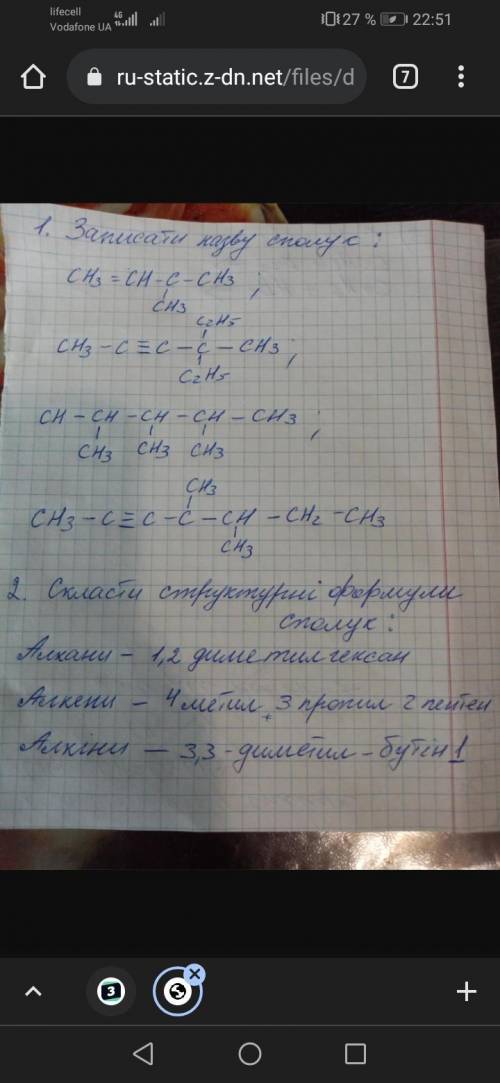 lifecell
Vodafone UA
4G
27 %
22:51
ru-static.z-dn.net/files/d
7
1. Записати назву сполук:
CH3 = CH – C – CH3 ;
CH3
C2H5
CH3 – C ≡ C – C – CH3 ;
C2H5
CH – CH – CH – CH – CH3 ;
CH3 CH3 CH3
CH3
CH3 – C ≡ C – C – CH – CH2 – CH3
CH3
2. Скласти структурні формули
сполук:
Алкани – 1,2 диметилгексан
Алкени – 4 метил + 3 пропил 2 пентен
Алкіни – 3,3 - диметил – бутін 1
3